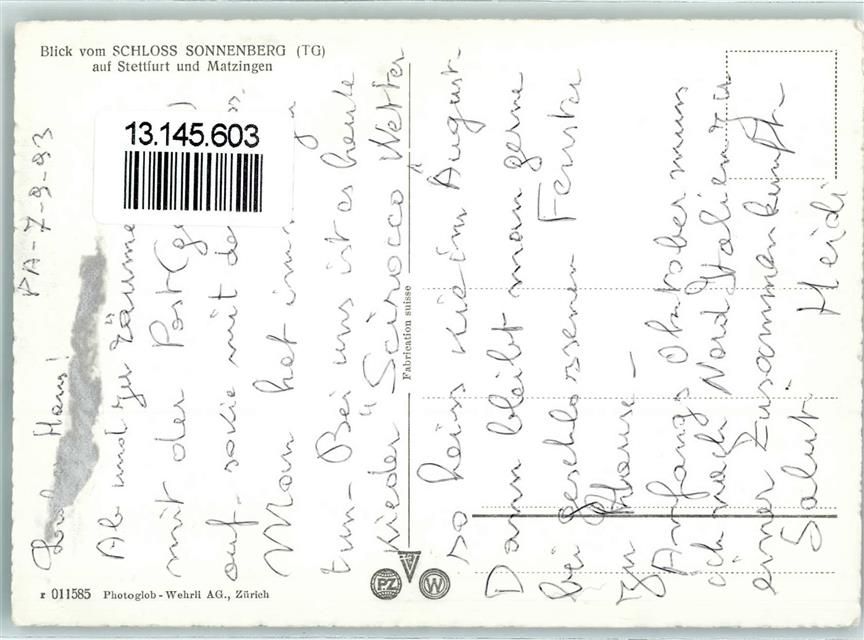 Blick vom SCHLOSS SONNENBERG (TG)
auf Stettfurt und Matzingen
13.145.603
PA-7-9-93
Hans!
Ab und zu räume
mit der Post (ge
auf - sowie mit de
Man hat imm
tun - Bei uns ist es heute
wieder "Scirocco" Wetter
so heiss wie im August -
Dann bleibt man gerne
bei geschlossenen Fenster
zu Hause -
Anfangs Oktober muss
ich nach Nord Italien zu
einer Zusammenkunft -
Salut Heidi
Fabrication suisse
PZ
W
r 011585 Photoglob-Wehrli AG., Zürich